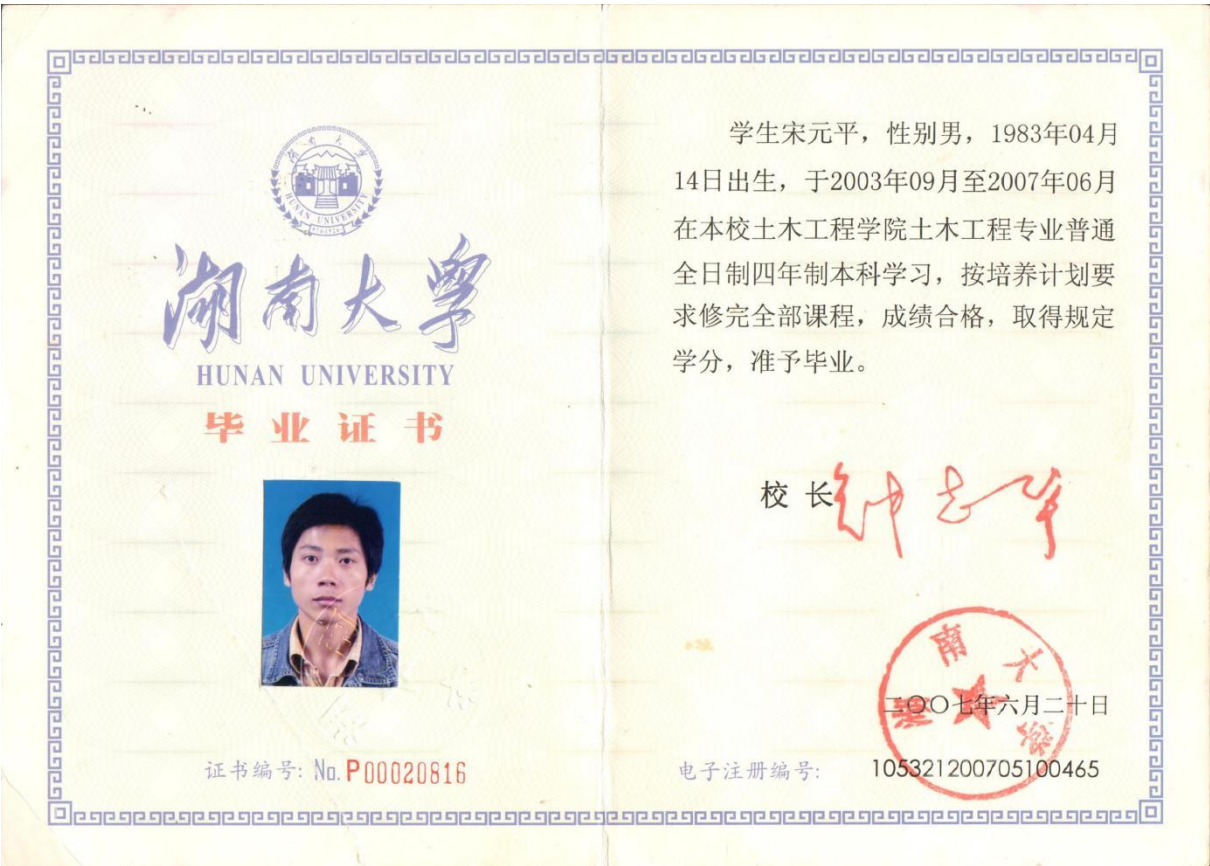 湖南大学
HUNAN UNIVERSITY
湖南大學
HUNAN UNIVERSITY
毕业证书
证书编号: No. P00020816
学生宋元平，性别男，1983年04月
14日出生，于2003年09月至2007年06月
在本校土木工程学院土木工程专业普通
全日制四年制本科学习，按培养计划要
求修完全部课程，成绩合格，取得规定
学分，准予毕业。
校 长 钟志华
湖南大学
二〇〇七年六月二十日
电子注册编号: 105321200705100465